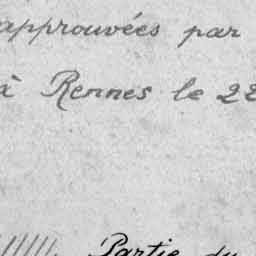 approuvées par
à Rennes le 22
Partie du